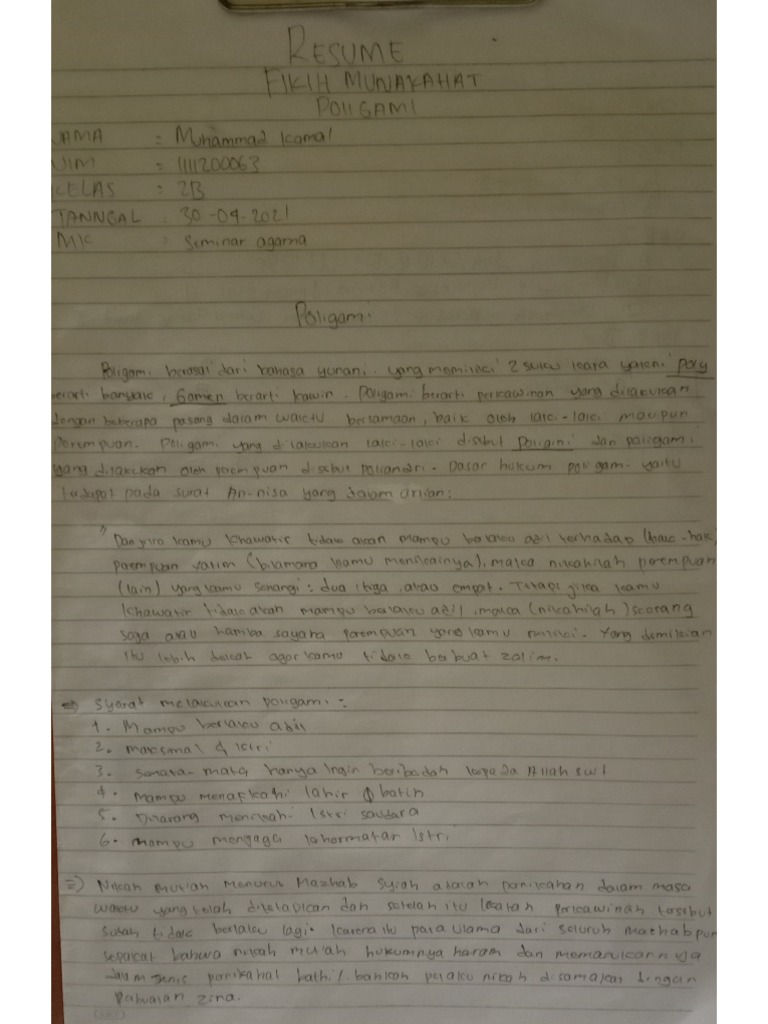 RESUME
FIKIH MUNAKAHAT
POLIGAMI
NAMA : Muhammad Kamal
NIM : 1111200063
KELAS : 2B
TANNGAL : 30-04-2021
MK : Seminar agama
Poligami
Poligami berasal dari bahasa yunani. yang memiliki 2 suku kata yakni poly
berarti banyak, Gamen berarti kawin. Poligami berarti perkawinan yang dilakukan
dengan beberapa pasang dalam waktu bersamaan, baik oleh laki-laki maupun
Perempuan. Poligami yang dilakukan laki-laki disebut Poligini dan poligami
yang dilakukan oleh perempuan disebut poliandri. Dasar hukum poligami yaitu
terdapat pada surat An-nisa yang dalam artian:
" Dan jika kamu khawatir tidak akan mampu berlaku adil terhadap (hak-hak)
perempuan yatim (bilamana kamu menikainya), maka nikahilah perempuan
(lain) yang kamu senangi: dua, tiga, atau empat. Tetapi jika kamu
khawatir tidak akan mampu berlaku adil, maka (nikahilah) seorang
saja atau hamba sahaya perempuan yang kamu miliki. Yang demikian
itu lebih dekat agar kamu tidak berbuat zalim.
=> Syarat melakukan poligami :
1. Mampu berlaku adil
2. maksimal 4 istri
3. Semata-mata hanya ingin beribadah kepada Allah swt
4. Mampu menafkahi lahir & batin
5. Dilarang menikahi Istri saudara
6. mampu menjaga kehormatan Istri
=> Nikah mut'ah menurut Mazhab Syiah adalah pernikahan dalam masa
waktu yang telah ditetapkan dan setelah itu ikatan perkawinan tersebut
sudah tidak berlaku lagi. karena itu para ulama dari seluruh mathabpun
sepakat bahwa nikah mut'ah hukumnya haram dan memasukannya
dalam jenis pernikahan bathil. bahkan pelaku nikah disamakan dengan
Perbuatan zina.